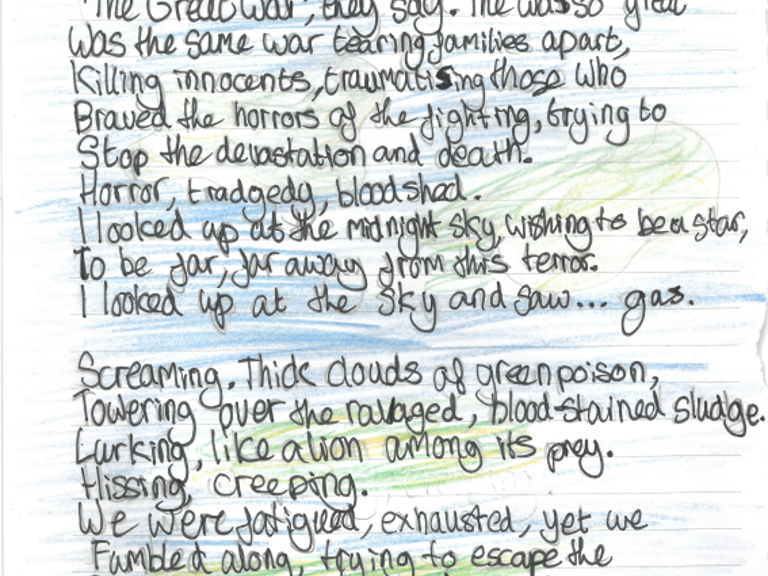 'The Great War', they say. The was so great
Was the same war tearing families apart,
Killing innocents, traumatising those who
Braved the horrors of the fighting, trying to
Stop the devastation and death.
Horror, tradgedy, bloodshed.
I looked up at the midnight sky, wishing to be a star,
To be far, far away from this terror.
I looked up at the sky and saw... gas.
Screaming. Thick clouds of green poison,
Towering over the ravaged, blood-stained sludge.
Lurking, like a lion among its prey.
Hissing, creeping.
We were fatigued, exhausted, yet we
Fumbled along, trying to escape the